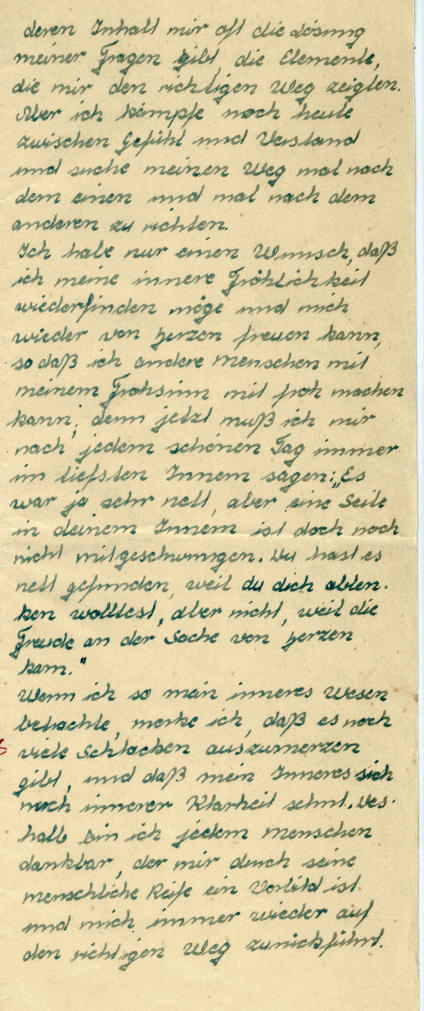 deren Inhalt mir oft die Lösung
meiner Fragen gibt, die Elemente,
die mir den richtigen Weg zeigten.
Aber ich kämpfe noch heute
zwischen Gefühl und Verstand
und suche meinen Weg mal nach
dem einen und mal nach dem
anderen zu richten.
Ich habe nur einen Wunsch, daß
ich meine innere Fröhlichkeit
wiederfinden möge und mich
wieder von Herzen freuen kann,
so daß ich andere Menschen mit
meinem Frohsinn mit froh machen
kann; denn jetzt muß ich mir
nach jedem schönen Tag immer
im tiefsten Innern sagen: „Es
war ja sehr nett, aber eine Seite
in deinem Innern ist doch noch
nicht mitgeschwungen. Du hast es
nett gefunden, weil du dich ablen-
ken wolltest, aber nicht, weil die
Freude an der Sache von Herzen
kam."
Wenn ich so mein inneres Wesen
betrachte, merke ich, daß es noch
viele Schlacken auszumerzen
gibt, und daß mein Inneres sich
nach innerer Klarheit sehnt. Des-
halb bin ich jedem Menschen
dankbar, der mir durch seine
menschliche Reife ein Vorbild ist
und mich immer wieder auf
den richtigen Weg zurückführt.